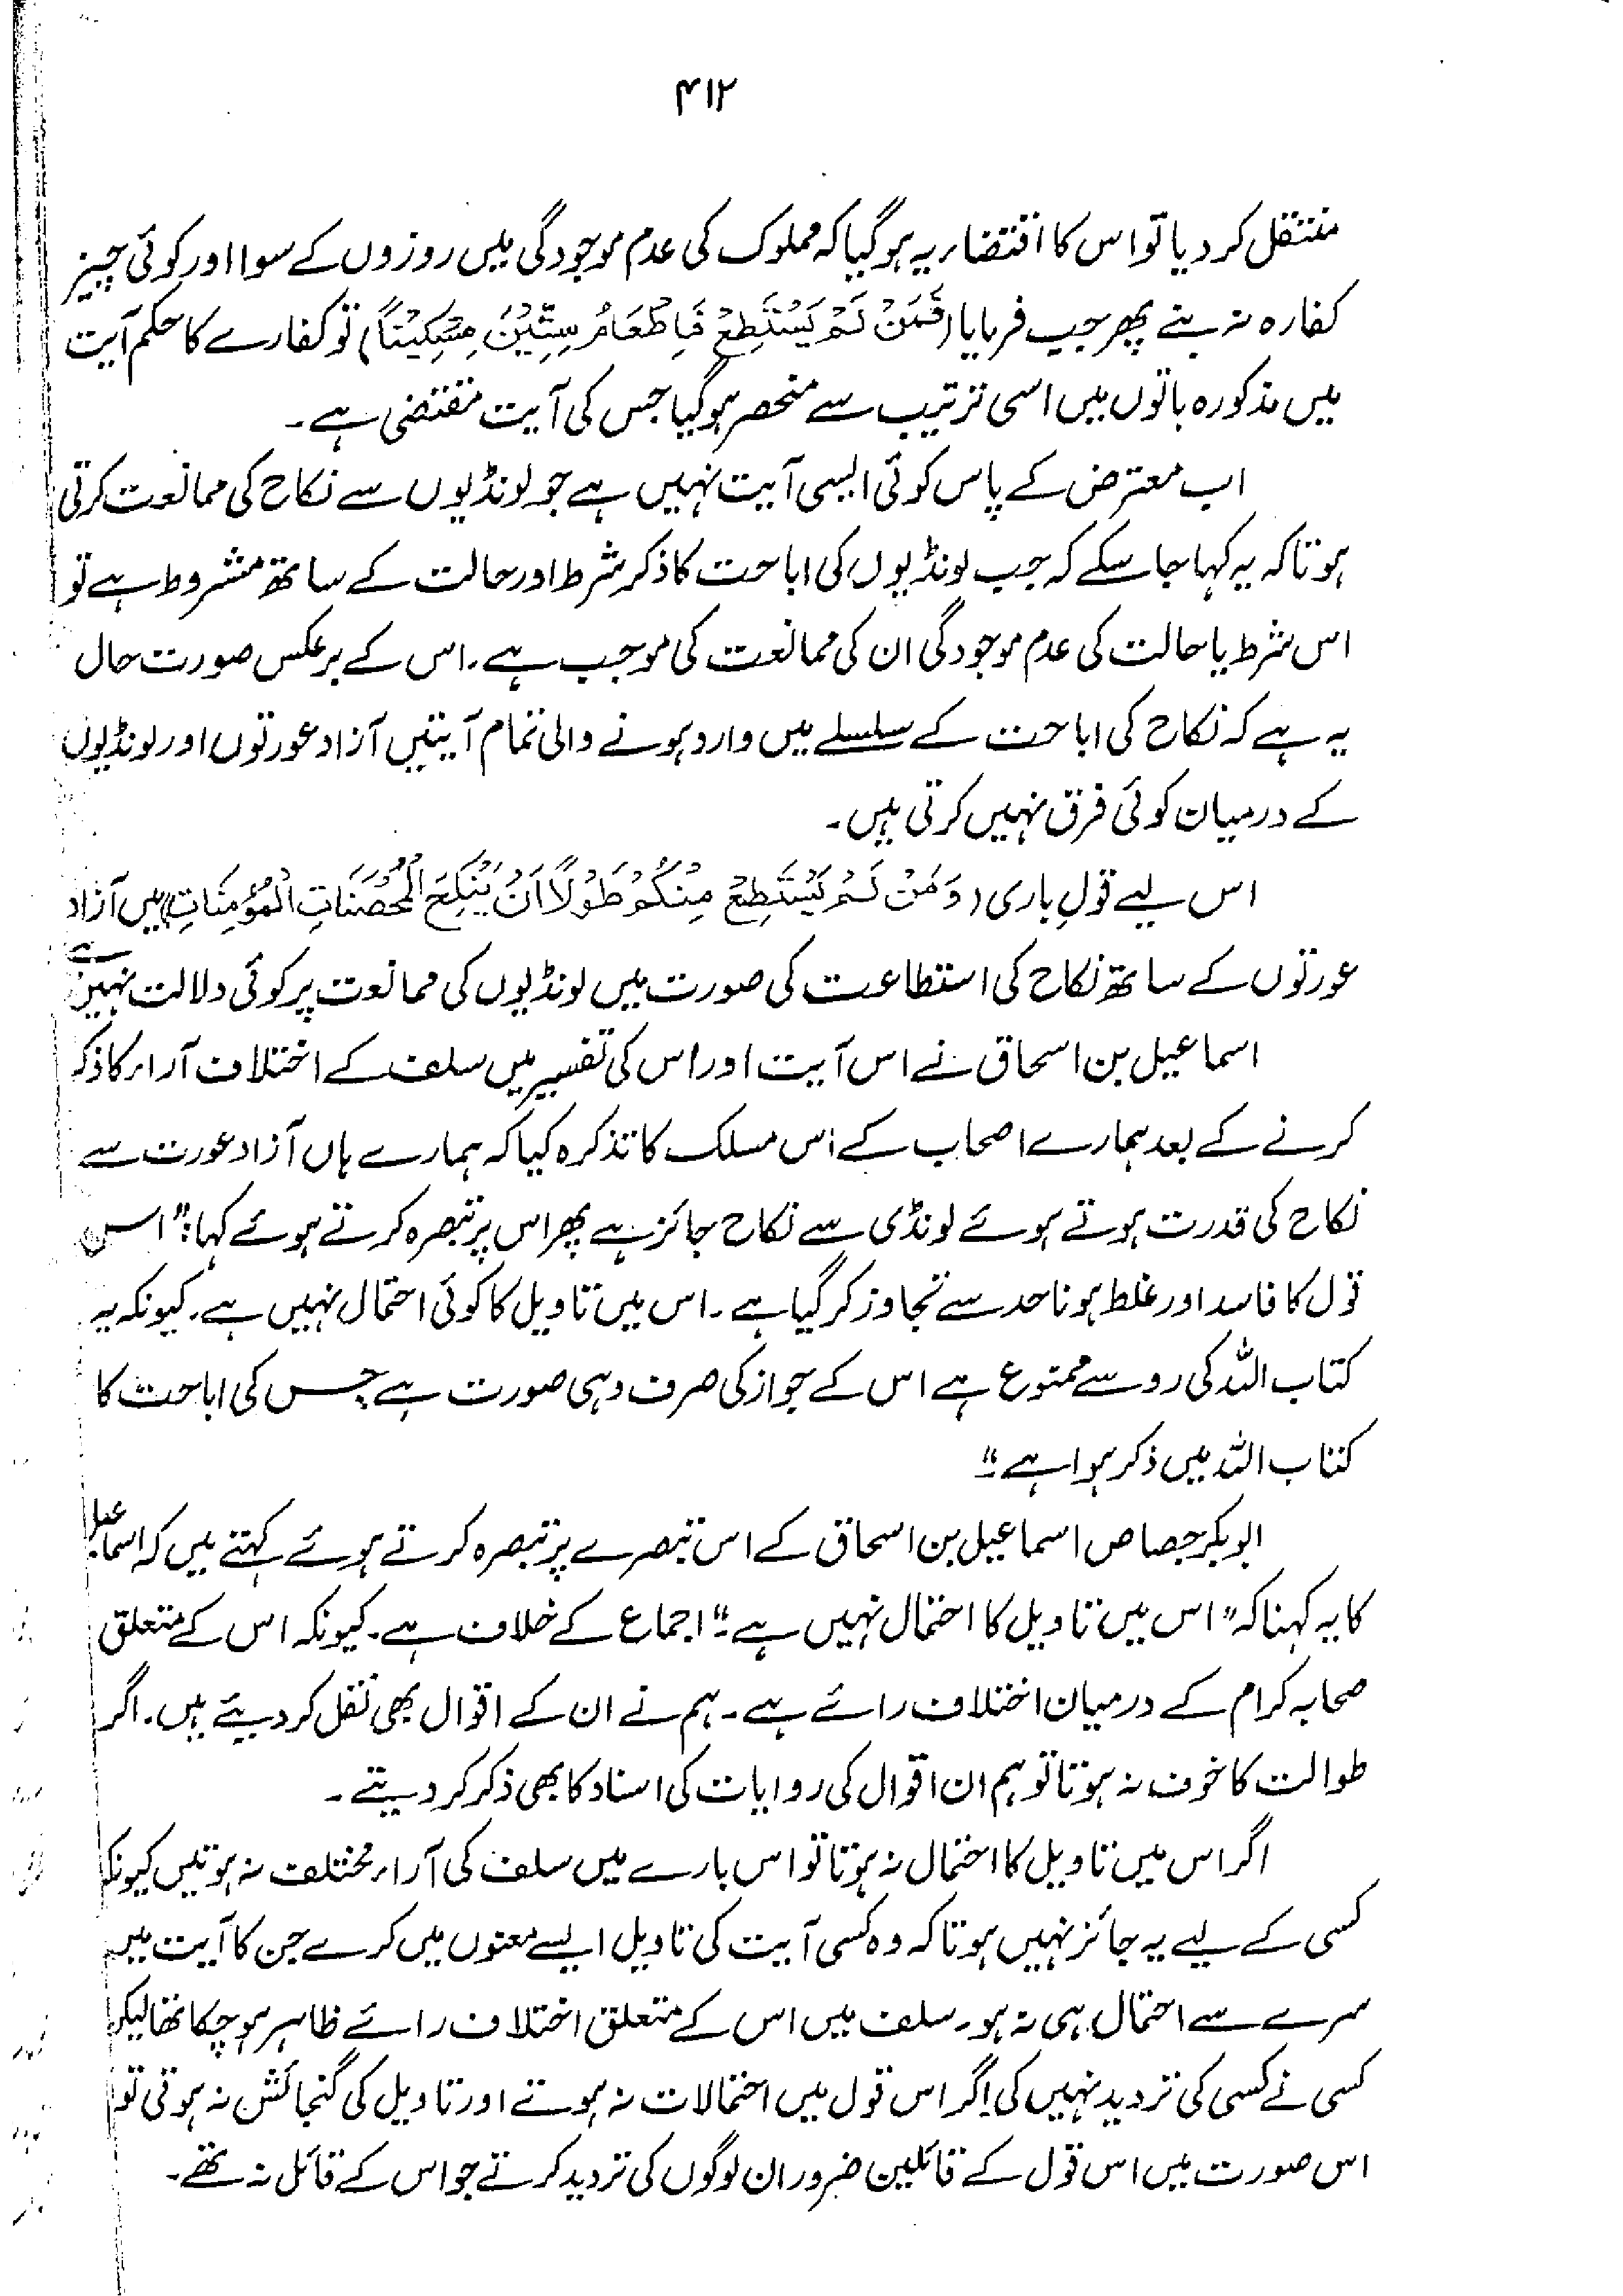 ۴۱۲
منتقل کر دیا تو اس کا اقتضاء یہ ہو گیا کہ مملوک کی عدم موجودگی میں روزوں کے سوا اور کوئی چیز
کفارہ نہ بنے پھر جب فرمایا (فَمَنْ لَمْ يَسْتَطِعْ فَاِطْعَامُ سِتِّيْنَ مِسْكِيْنًا) تو کفارے کا حکم آیت
میں مذکورہ باتوں میں اسی ترتیب سے منحصر ہو گیا جس کی آیت مقتضی ہے۔
اب معترض کے پاس کوئی ایسی آیت نہیں ہے جو لونڈیوں سے نکاح کی ممانعت کرتی
ہو تاکہ یہ کہا جا سکے کہ جب لونڈیوں کی اباحت کا ذکر شرط اور حالت کے ساتھ مشروط ہے تو
اس شرط یا حالت کی عدم موجودگی ان کی ممانعت کی موجب ہے۔ اس کے برعکس صورت حال
یہ ہے کہ نکاح کی اباحت کے سلسلے میں وارد ہونے والی تمام آیتیں آزاد عورتوں اور لونڈیوں
کے درمیان کوئی فرق نہیں کرتی ہیں۔
اس لیے قولِ باری (وَمَنْ لَمْ يَسْتَطِعْ مِنْكُمْ طَوْلًا اَنْ يَنْكِحَ الْمُحْصَنَاتِ الْمُؤْمِنَاتِ) میں آزاد
عورتوں کے ساتھ نکاح کی استطاعت کی صورت میں لونڈیوں کی ممانعت پر کوئی دلالت نہیں ہے
اسماعیل بن اسحاق نے اس آیت اور اس کی تفسیر میں سلف کے اختلاف آراء کا ذکر
کرنے کے بعد ہمارے اصحاب کے اس مسلک کا تذکرہ کیا کہ ہمارے ہاں آزاد عورت سے
نکاح کی قدرت ہوتے ہوئے لونڈی سے نکاح جائز ہے پھر اس پر تبصرہ کرتے ہوئے کہا: "اس
قول کا فاسد اور غلط ہونا حد سے تجاوز کر گیا ہے۔ اس میں تاویل کا کوئی احتمال نہیں ہے۔ کیونکہ یہ
کتاب اللہ کی رو سے ممنوع ہے اس کے جواز کی صرف وہی صورت ہے جس کی اباحت کا
کتاب اللہ میں ذکر ہوا ہے۔"
ابوبکر جصاص اسماعیل بن اسحاق کے اس تبصرے پر تبصرہ کرتے ہوئے کہتے ہیں کہ اسماعیل
کا یہ کہنا کہ "اس میں تاویل کا احتمال نہیں ہے۔" اجماع کے خلاف ہے۔ کیونکہ اس کے متعلق
صحابہ کرام کے درمیان اختلاف رائے ہے۔ ہم نے ان کے اقوال بھی نقل کر دیئے ہیں۔ اگر
طوالت کا خوف نہ ہوتا تو ہم ان اقوال کی روایات کی اسناد کا بھی ذکر کر دیتے۔
اگر اس میں تاویل کا احتمال نہ ہوتا تو اس بارے میں سلف کی آراء مختلف نہ ہوتیں کیونکہ
کسی کے لیے یہ جائز نہیں ہوتا کہ وہ کسی آیت کی تاویل ایسے معنوں میں کرے جن کا آیت میں
سرے سے احتمال ہی نہ ہو۔ سلف میں اس کے متعلق اختلاف رائے ظاہر ہو چکا تھا لیکن
کسی نے کسی کی تردید نہیں کی اگر اس قول میں احتمالات نہ ہوتے اور تاویل کی گنجائش نہ ہوتی تو
اس صورت میں اس قول کے قائلین ضرور ان لوگوں کی تردید کرتے جو اس کے قائل نہ تھے۔